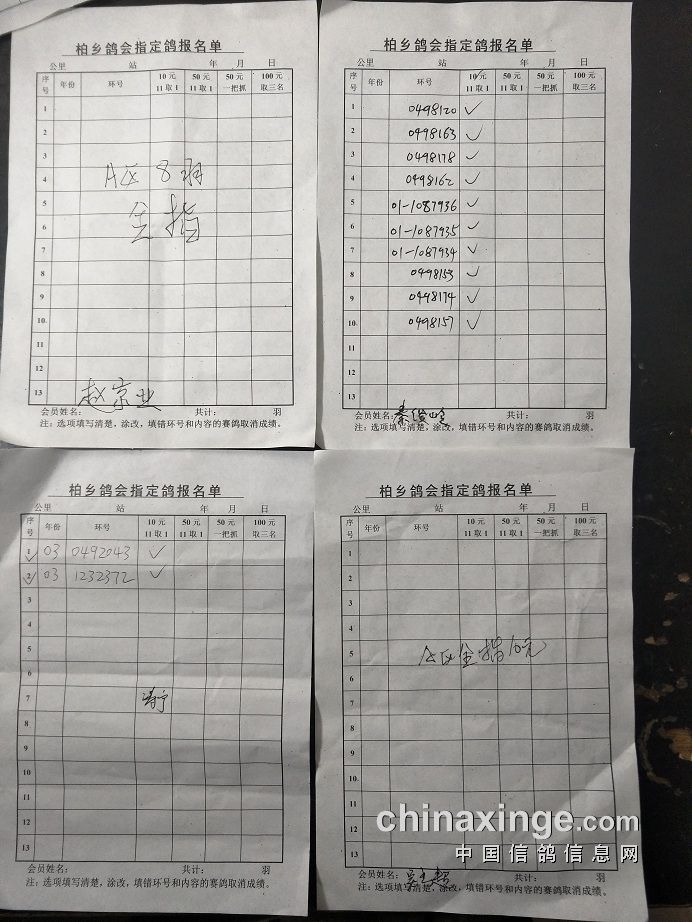 柏乡鸽会指定鸽报名单
公里 站 年 月 日
序号 年份 环号 10元 11取1 50元 11取1 50元 一把抓 100元 取三名
1
2
3
4 A区8羽
5
6 全指
7
8
9
10
11
12
13
赵京业
会员姓名: 共计: 羽
注:选项填写清楚,涂改,填错环号和内容的赛鸽取消成绩。
柏乡鸽会指定鸽报名单
公里 站 年 月 日
序号 年份 环号 10元 11取1 50元 11取1 50元 一把抓 100元 取三名
1 0498120 ✓
2 0498163 ✓
3 0498178 ✓
4 0498162 ✓
5 01-1087936 ✓
6 01-1087935 ✓
7 01-1087934 ✓
8 0498153 ✓
9 0498174 ✓
10 0498157 ✓
11
12
13
会员姓名: 共计: 羽
注:选项填写清楚,涂改,填错环号和内容的赛鸽取消成绩。
柏乡鸽会指定鸽报名单
公里 站 年 月 日
序号 年份 环号 10元 11取1 50元 11取1 50元 一把抓 100元 取三名
1 03 0492043 ✓
2 03 1232372 ✓
3
4
5
6
7
8
9
10
11
12
13
会员姓名: 共计: 羽
注:选项填写清楚,涂改,填错环号和内容的赛鸽取消成绩。
柏乡鸽会指定鸽报名单
公里 站 年 月 日
序号 年份 环号 10元 11取1 50元 11取1 50元 一把抓 100元 取三名
1
2
3
4
5 A区全指10元
6
7
8
9
10
11
12
13
会员姓名: 共计: 羽
注:选项填写清楚,涂改,填错环号和内容的赛鸽取消成绩。
chinaxinge.com
中国信鸽信息网